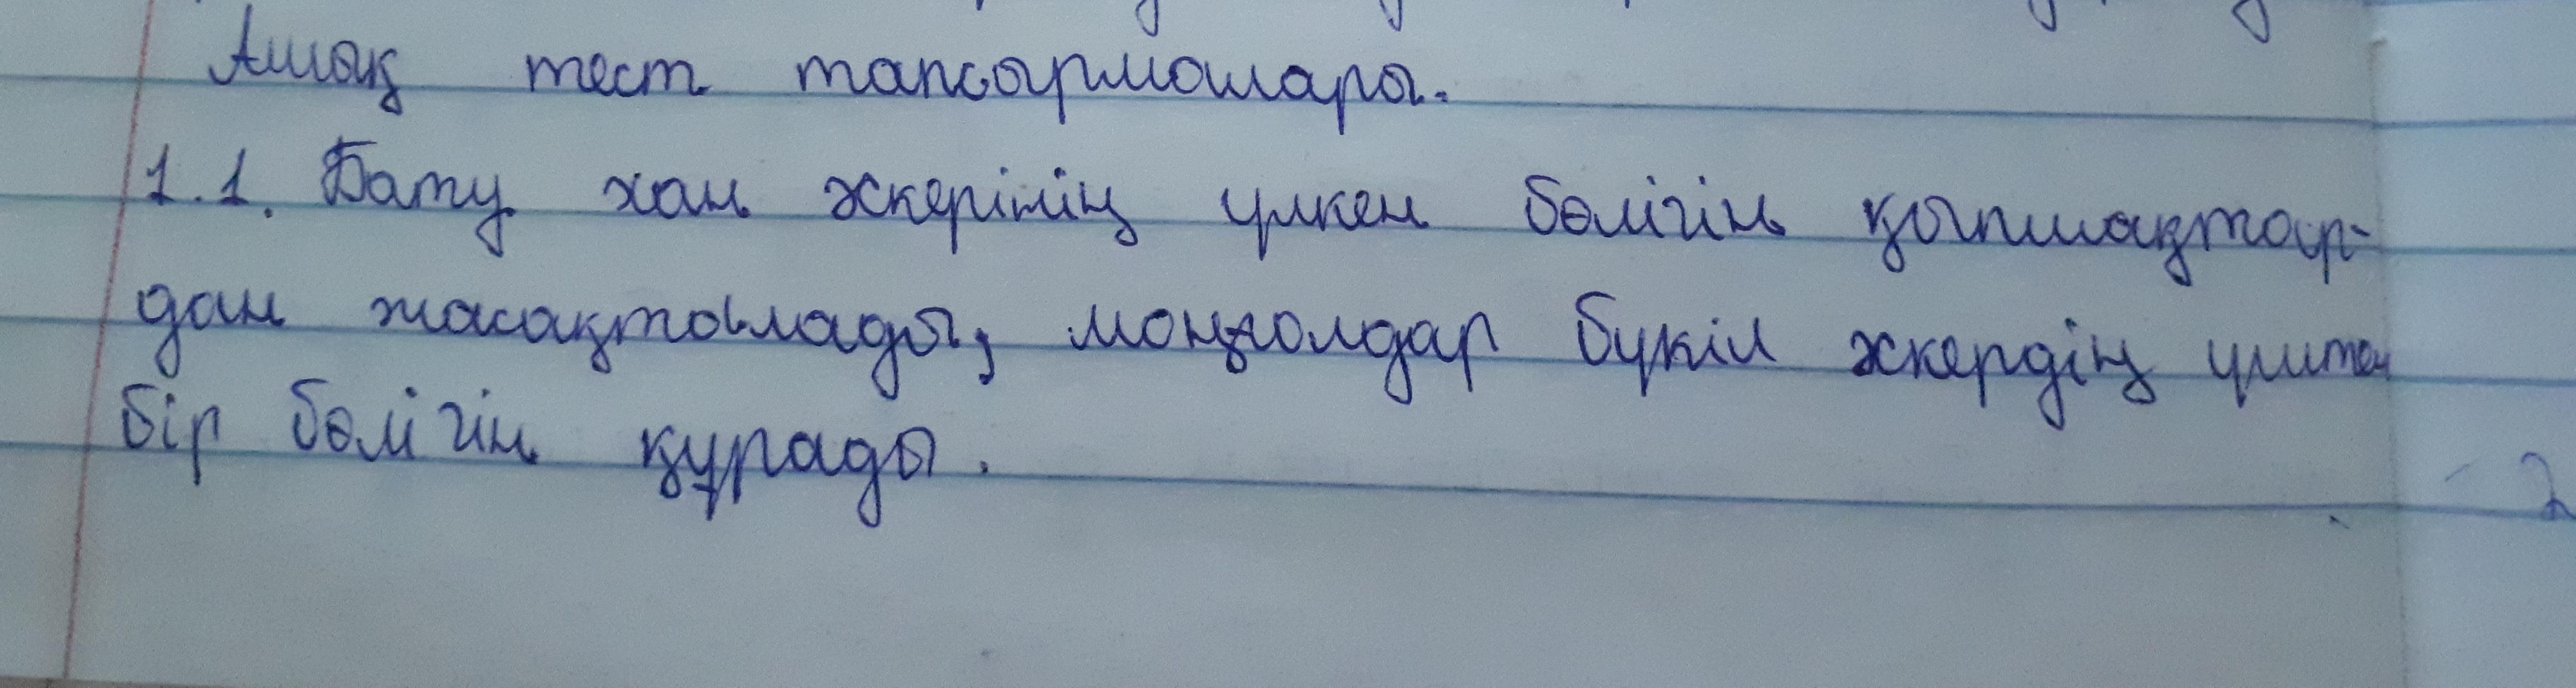 Ашық тест тапсырмалары.
1.1. Бату хан әскерінің үлкен бөлігін қыпшақтар-
дан жасақталады, моңғолдар бүкіл әскердің үштен
бір бөлігін құрады.
2